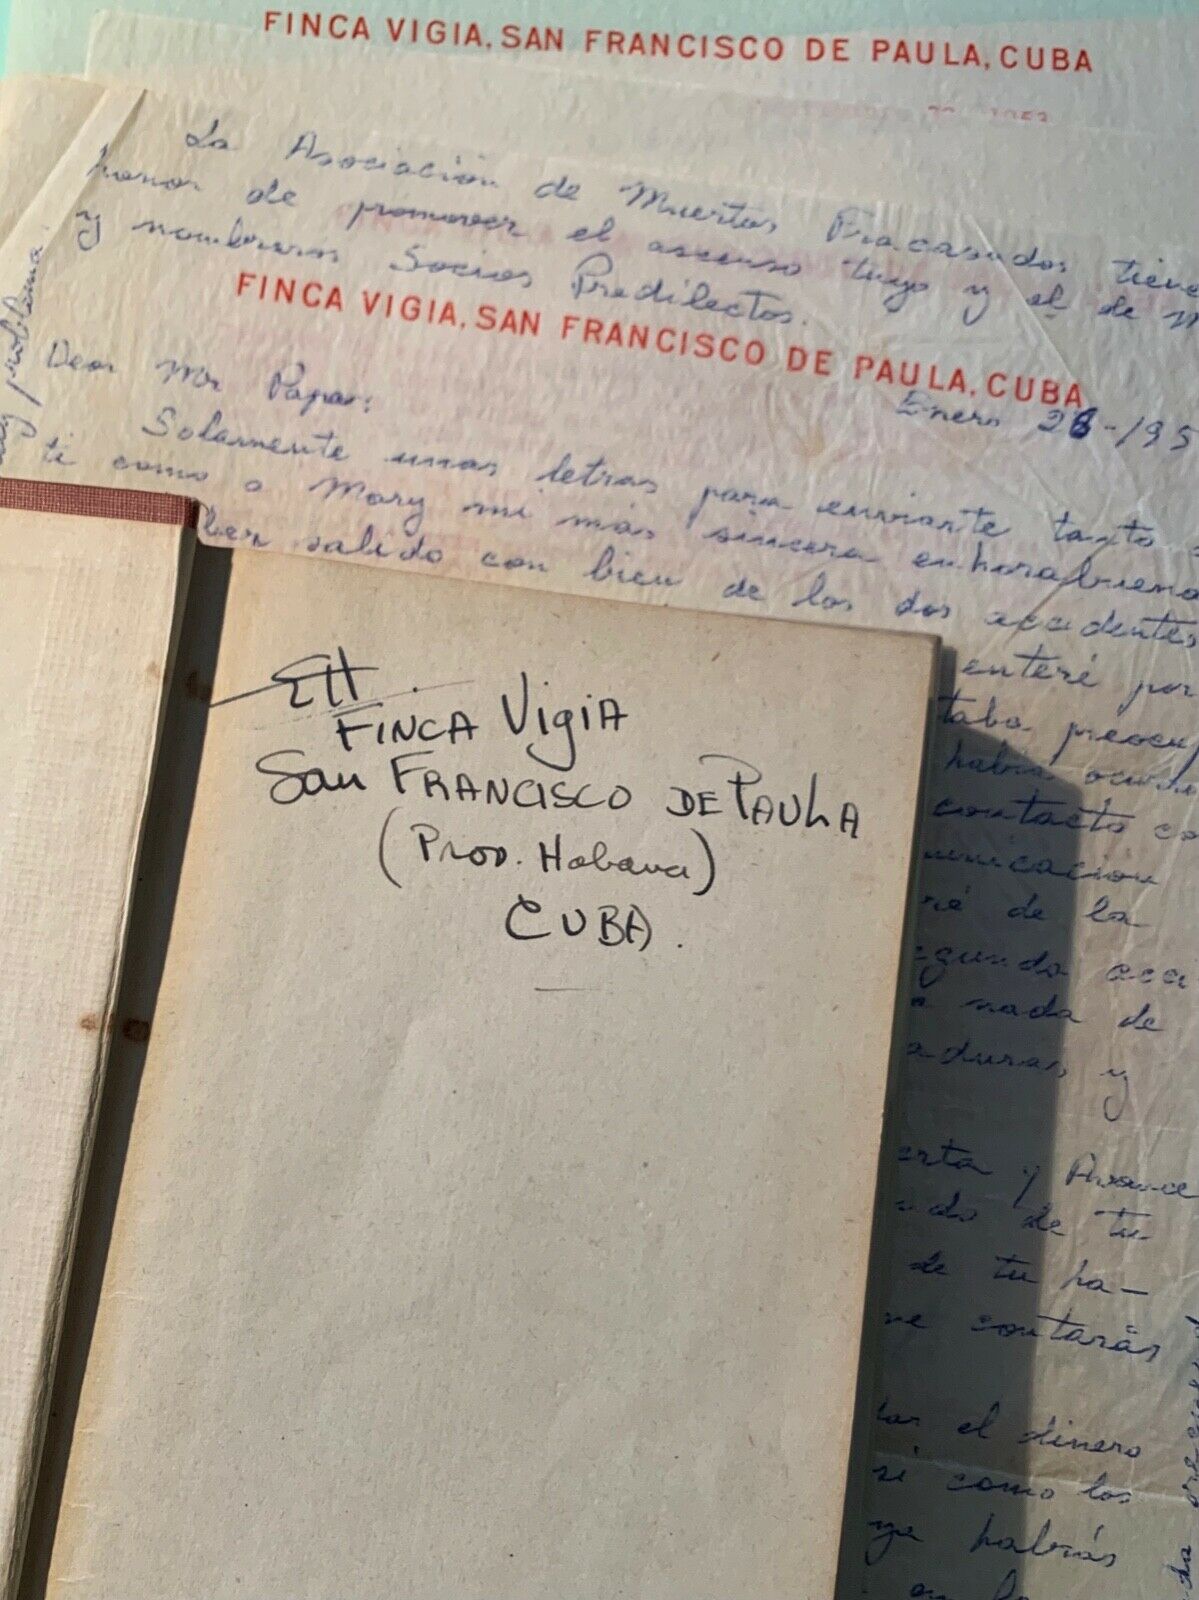 FINCA VIGIA, SAN FRANCISCO DE PAULA, CUBA
La Asociación de Muertos Fracasados tiene
honor de promover el ascenso tuyo y el de
y nombraros Socios Predilectos.
problema.
FINCA VIGIA, SAN FRANCISCO DE PAULA, CUBA
Enero 28-195
Dear Mr Papa:
Solamente unas letras para enviarte tanto a
ti como a Mary mi más sincera enhorabuena
ber salido con bien de los dos accidentes
enteré por
taba preocu
había ocurri
contacto co
unicacion
ré de la
egundo acci
nada de
aduras y
erta y Avance
ado de tu
de tu ha-
me contarás
el dinero
si como los
ya habrás
EH.
FINCA VigiA
San FRANCISCO DE PAULA
(Prov. Habana)
CUBA.